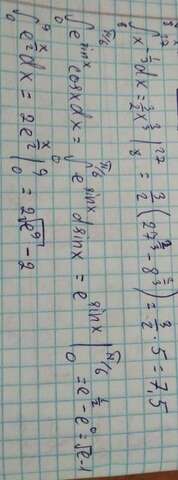 ∫₈²⁷ x^(-1/3) dx = 3/2 x^(2/3) |₈²⁷ = 3/2 (27^(2/3) - 8^(2/3)) = 3/2 · 5 = 7.5
∫₀^(π/6) e^(sin x) cos x dx = ∫₀^(π/6) e^(sin x) d sin x = e^(sin x) |₀^(π/6) = e^(1/2) - e⁰ = √e - 1
∫₀⁹ e^(x/2) dx = 2e^(x/2) |₀⁹ = 2√e⁹ - 2